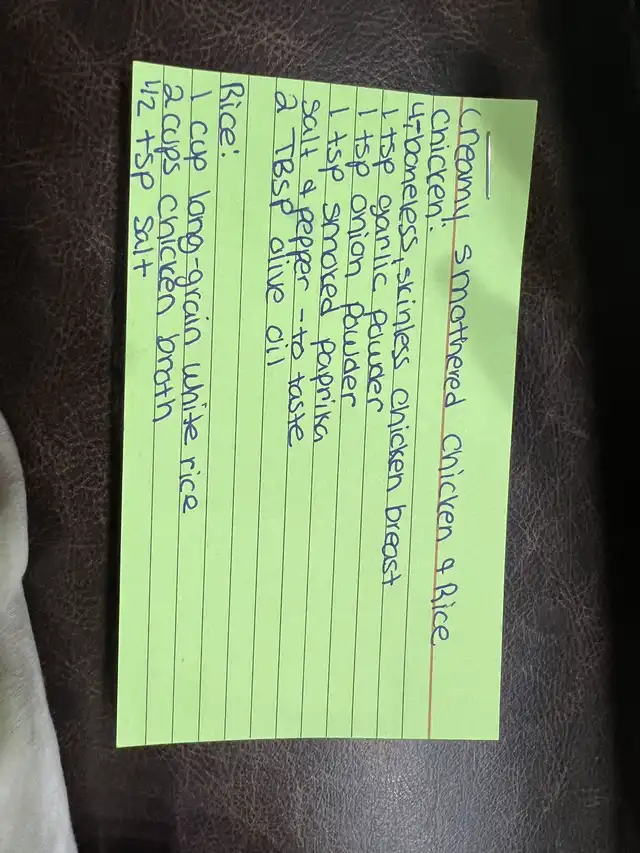 Creamy smothered chicken & Rice
Chicken:
4-boneless, skinless chicken breast
1 tsp garlic powder
1 tsp onion powder
1 tsp smoked paprika
Salt & pepper - to taste
2 TBSP olive oil
Rice:
1 cup long-grain white rice
2 cups chicken broth
1/2 tsp salt